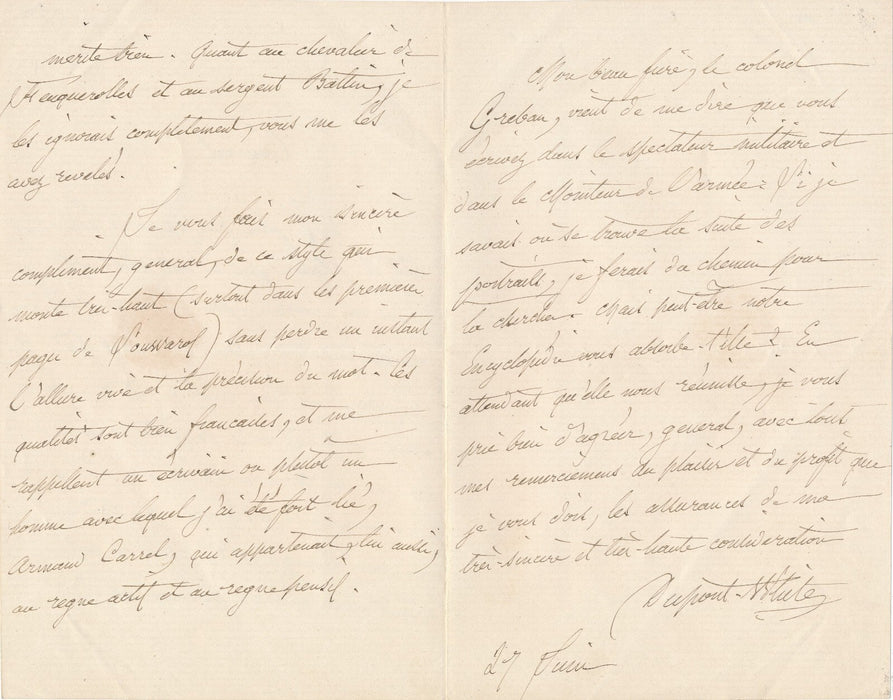 mérite bien. Quant au chevalier de
Fenquerolles et au sergent Battin, je
les ignorais complètement, vous me les
avez révélés.
Je vous fais mon sincère
compliment, général, de ce style qui
monte très-haut (surtout dans les premières
pages de Souwarof) sans perdre un instant
l'allure vive et la précision du mot. Ces
qualités sont bien françaises, et me
rappellent un écrivain ou plutôt un
homme avec lequel j'ai été fort lié,
Armand Carrel, qui appartenait, lui aussi,
au règne actif et au règne pensif.
Mon beau frère, le colonel
Greban, vient de me dire que vous
écrivez dans le spectateur militaire et
dans le Moniteur de l'armée. Si je
savais où se trouve la suite des
portraits, je ferais du chemin pour
la chercher. Mais peut-être notre
Encyclopédie vous absorbe-t-elle ? En
attendant qu'elle nous réunisse, je vous
prie bien d'agréer, général, avec tous
mes remerciemens du plaisir et du profit que
je vous dois, les assurances de ma
très-sincère et très-haute considération
Dupont-White
27 Juin